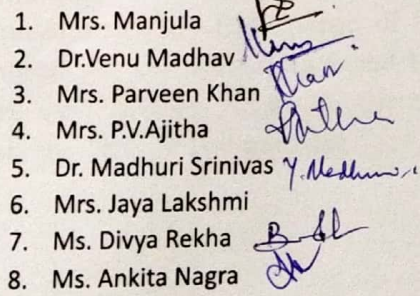 1. Mrs. Manjula
2. Dr.Venu Madhav
3. Mrs. Parveen Khan Khan
4. Mrs. P.V.Ajitha
5. Dr. Madhuri Srinivas Y. Madhuri
6. Mrs. Jaya Lakshmi
7. Ms. Divya Rekha
8. Ms. Ankita Nagra